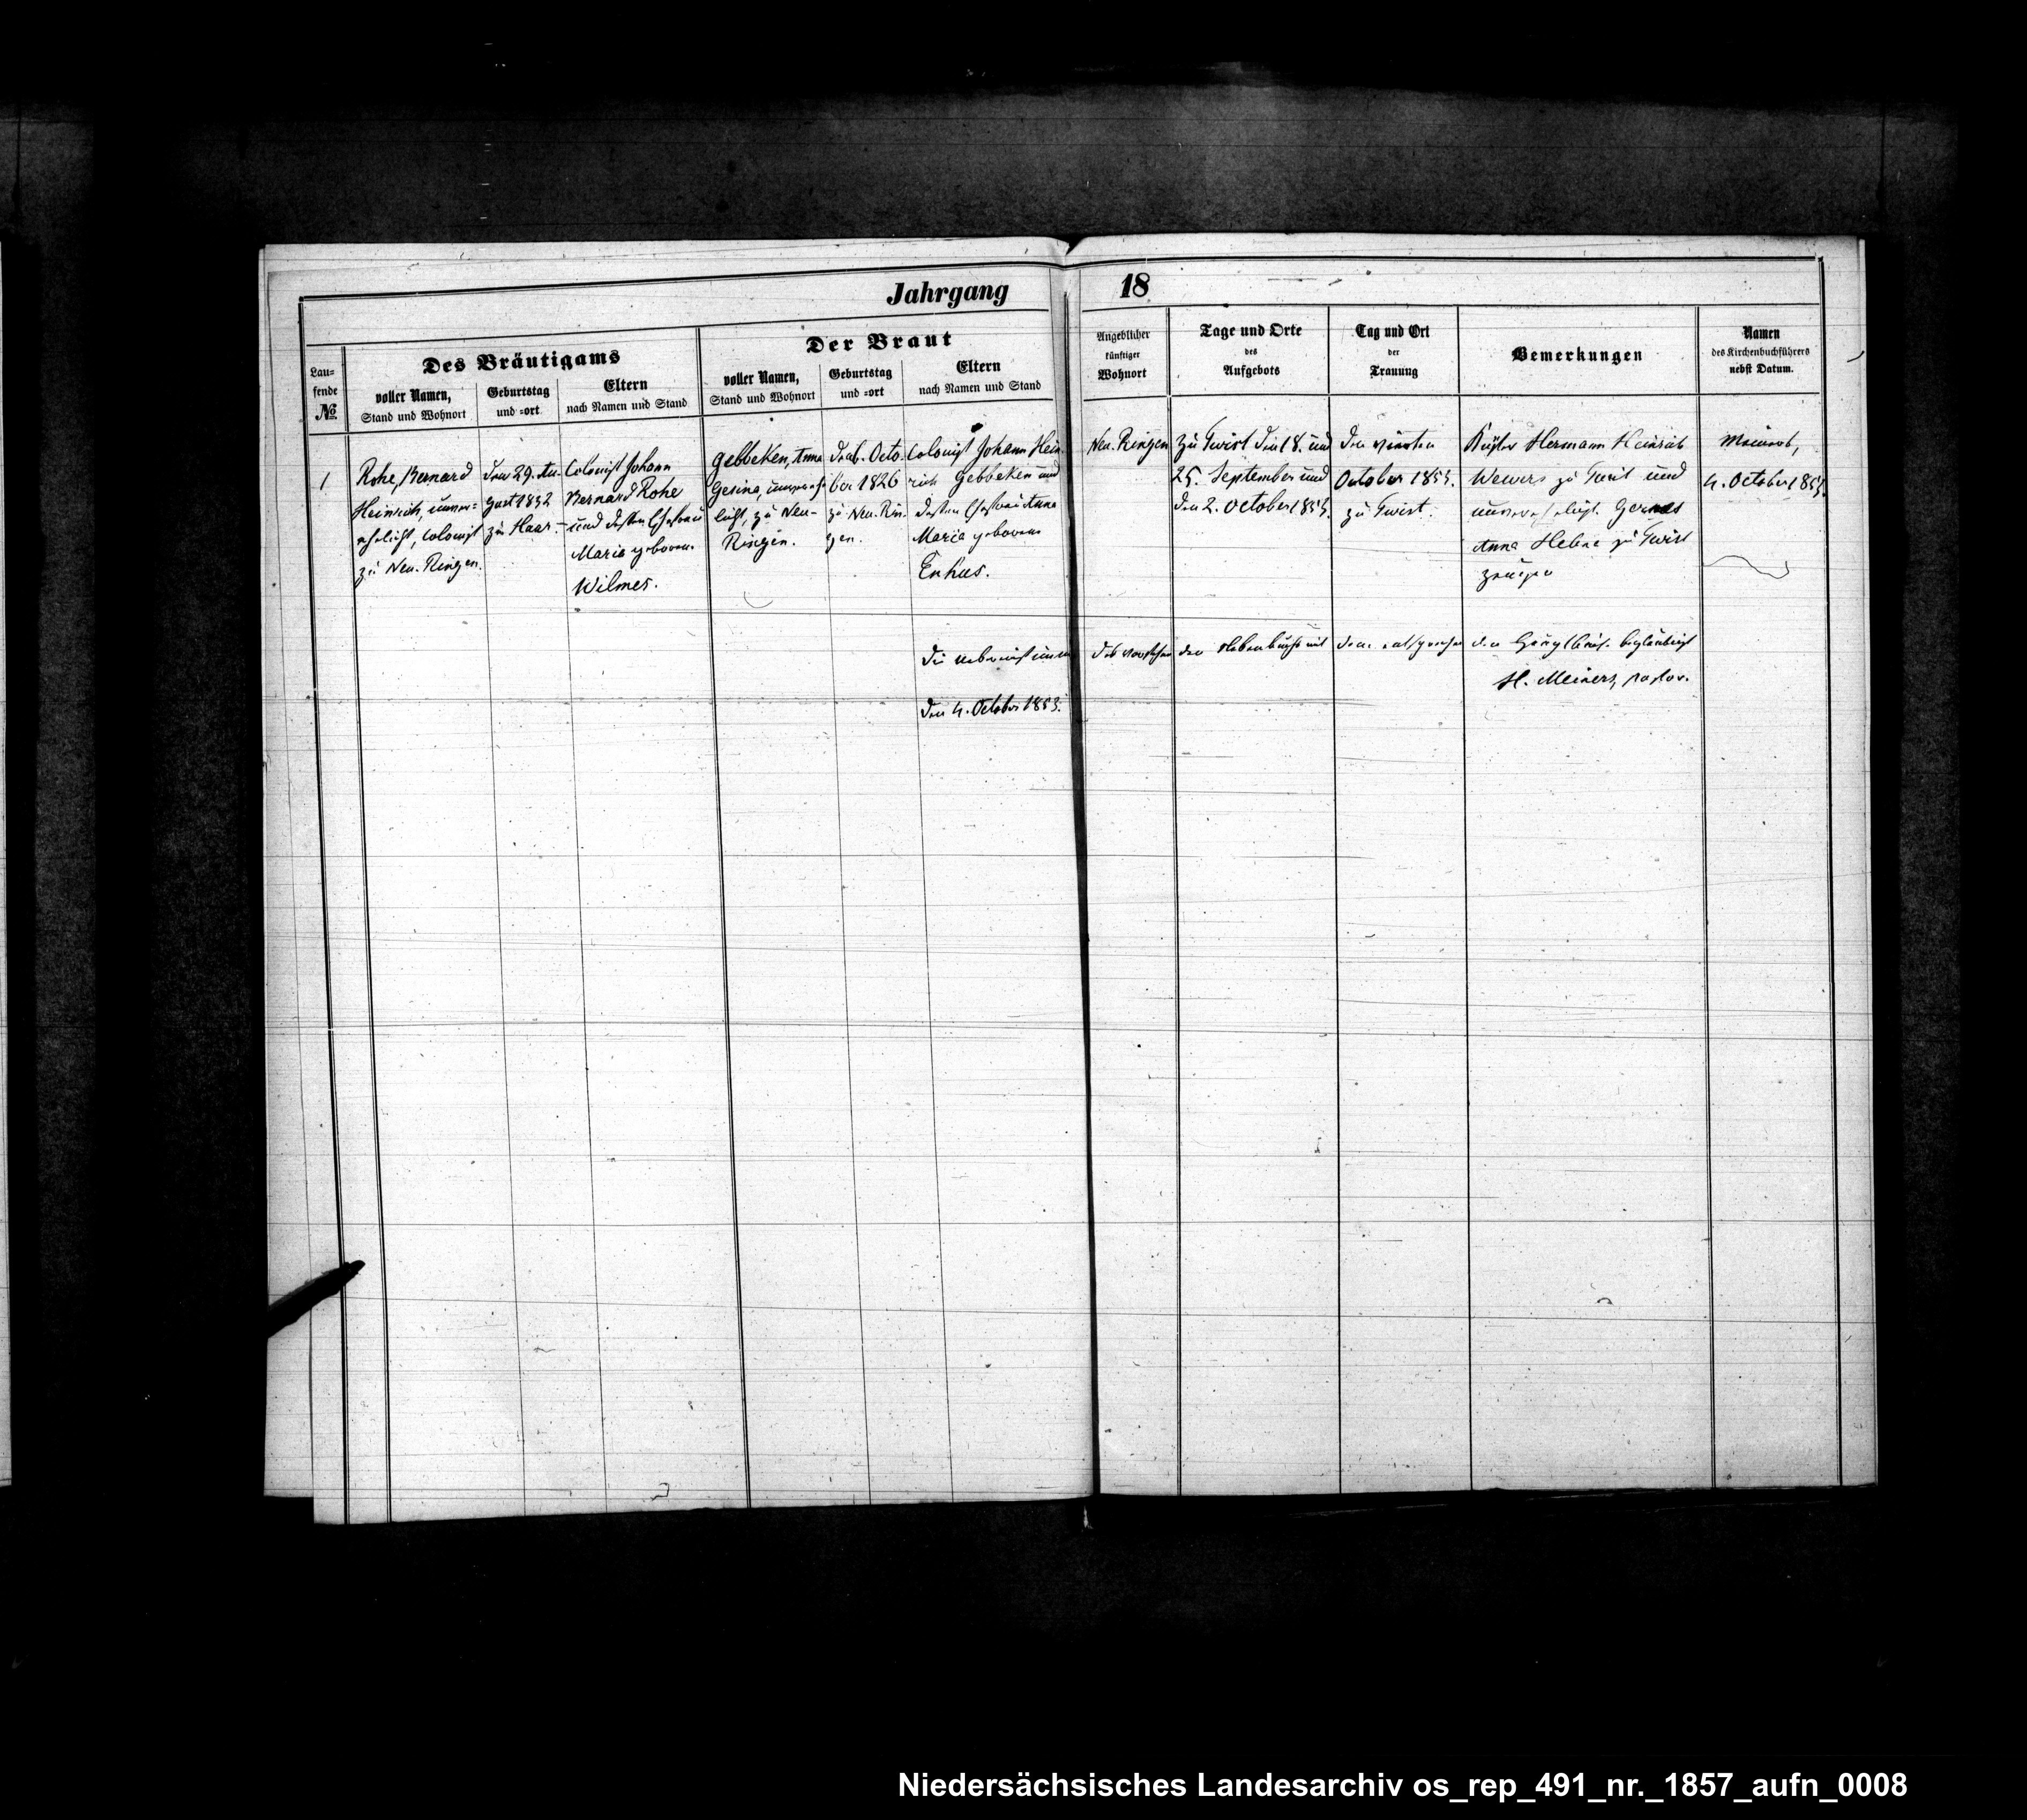 Jahrgang 18
Des Bräutigams
Der Braut
Lau-
fende
№
voller Namen,
Stand und Wohnort
Geburtstag
und =ort
Eltern
nach Namen und Stand
voller Namen,
Stand und Wohnort
Geburtstag
und =ort
Eltern
nach Namen und Stand
Angeblicher
künftiger
Wohnort
Tage und Orte
des
Aufgebots
Tag und Ort
der
Trauung
Bemerkungen
Namen
des Kirchenbuchführers
nebst Datum.
1
Rohe, Bernard
Heinrich, unver=
ehelicht, Colonist
zu Neu-Ringen.
Den 29. Au-
gust 1832
zu Haar-
Colonist Johann
Bernard Rohe
und dessen Ehefrau
Maria geborene
Wilmes.
Gebbeken, Anna
Gesina, unverehe
licht, zu Neu-
Ringen.
Octo-
ber 1826
zu Neu-Rin-
gen.
Colonist Johann Hein-
rich Gebbeken und
dessen Ehefrau Anna
Maria geborene
Enhus.
Neu-Ringen
zu Twist den 18. und
25. September und
den 2. October 1853.
den vierten
October 1853.
zu Twist.
Küster Hermann Heinrich
Wewers zu Twist und
unverehelicht. Gerdes
Anna Helena zu Twist
Zeugen
Meiners,
4. October 1853.
Die Uebereinstimmung des vorstehenden Nebenbuchs mit dem entsprechenden Hauptbuch beglaubigt
H. Meiners, Pastor.
Den 4. October 1853.
Niedersächsisches Landesarchiv os_rep_491_nr._1857_aufn_0008